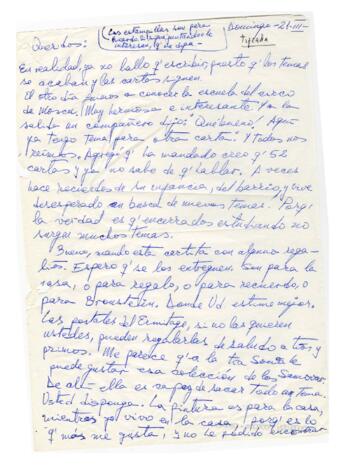 (Las estampillas son para
Ricardo
interesen, q' de
Domingo - 21 - III -
Queridos:
En realidad ya no hallo q' escribir, puesto q' los temas
se acaban y las cartas siguen.
El otro día fuimos a conocer la escuela del circo
de Moscú. Muy hermosa e interesante y a la
salida un compañero dijo: Qué bueno! Aquí
ya tengo tema para otra carta. Y todos nos
reimos. Agregó q' ha mandado creo q' 52
cartas y ya no sabe de q' hablar. A veces
hace recuerdos de su infancia, del barrio, y vive
desesperado en busca de nuevos temas. Porq'
la verdad es q' encerrados estudiando no
surgen muchos temas.
Bueno, mando esta cartita con algunos rega-
litos. Espero q' se los entreguen. Son para la
casa, o para regalo, o para recuerdo, o
para Bronstein. Donde Ud. estime mejor.
Las postales del Ermitage, si no las quieren
ustedes, pueden regalarlas de saludo a tíos y
primos. Me parece q' a la tía
puede gustar esa colección de los Samovar.
De allí ella es capaz de sacar todo un tema.
Usted disponga. La pintura es para la casa,
mientras yo vivo en la casa, porq' es lo
q' más me gusta, y no he podido encontrar